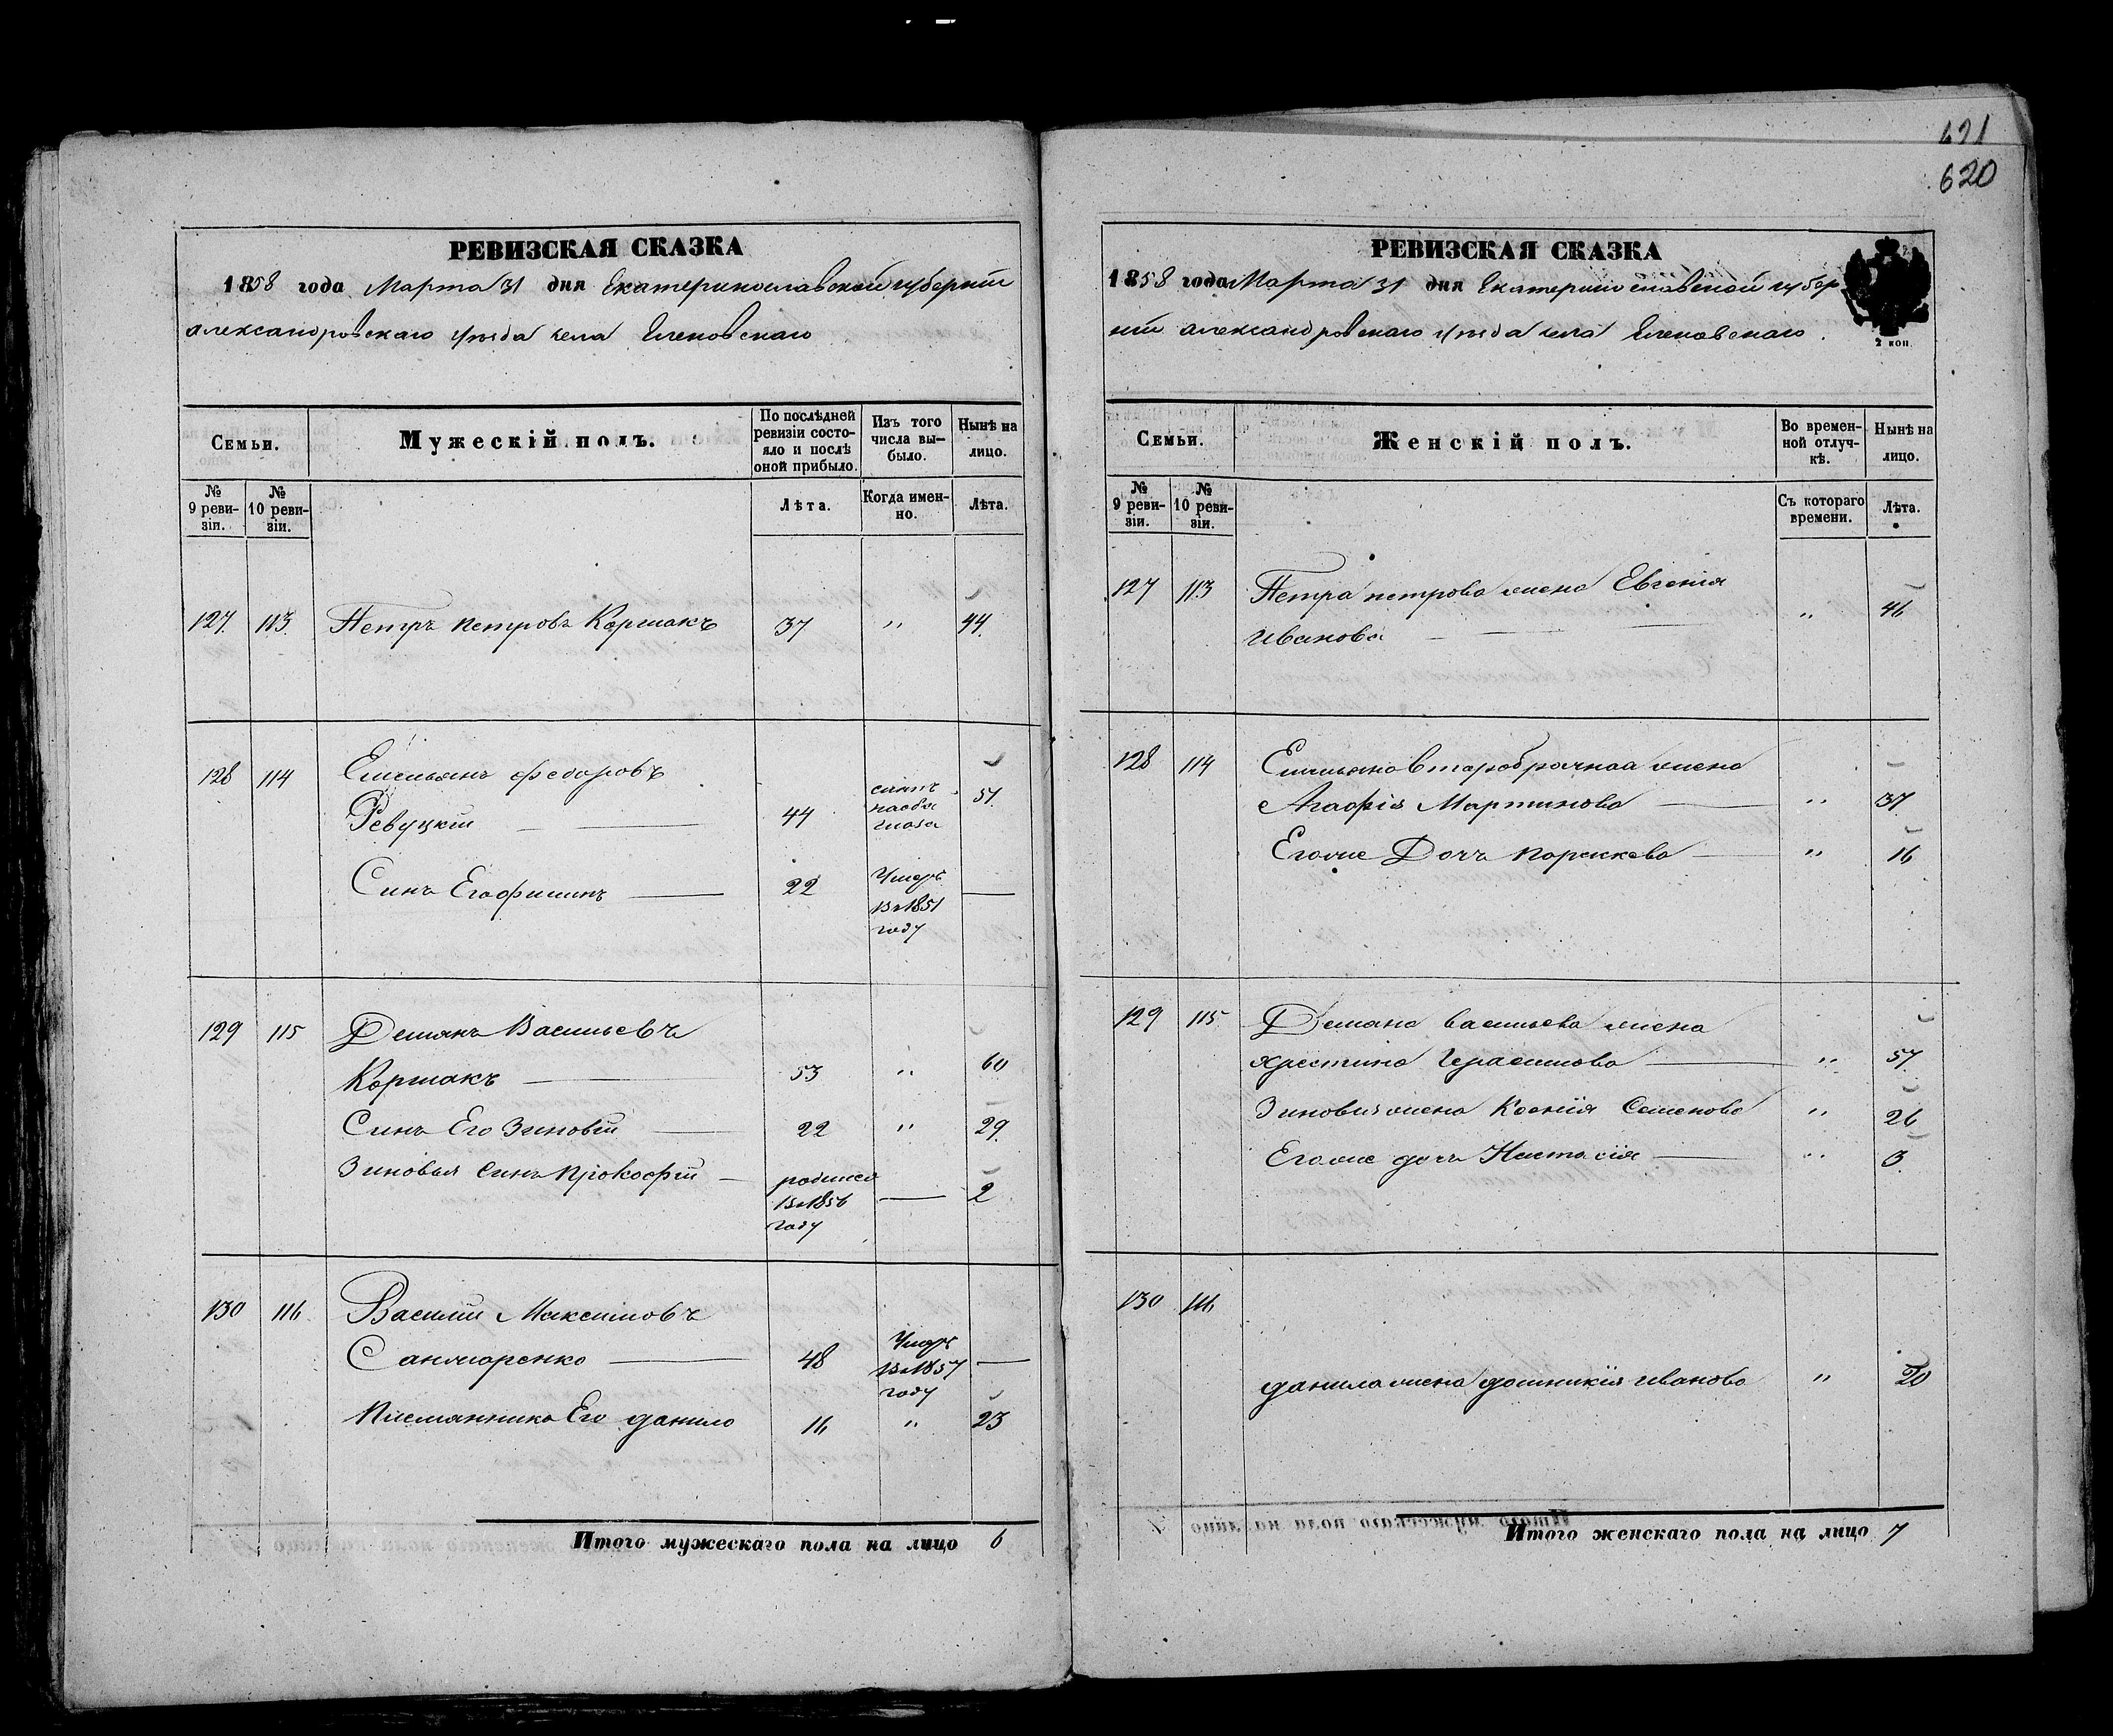 621
620
РЕВИЗСКАЯ СКАЗКА
1858 года Марта 31 дня Екатеринославской губернии
александровскаго уѣзда села Еленовскаго
Семьи.
Мужескій полъ.
По послѣдней ревизіи состояло и послѣ оной прибыло.
Изъ того числа выбыло.
Нынѣ на лицо.
№ 9 ревизіи.
№ 10 ревизіи.
Лѣта.
Когда именно.
Лѣта.
127. 113. Петръ петровъ Коршакъ 37 " 44.
128 114 Емельянъ федоровъ
Ревуцкій 44 51.
Синъ Егофимъ 22 Умеръ
въ 1851
году
129 115 Демянъ Васильевъ
Коршакъ 53 " 60
Синъ Его Зиновій 22 " 29.
Зиновья Синъ Прокофій родился 2
въ 1856
году
130 116. Василій Максимовъ
48 Умеръ
въ 1857
году
Племянникъ Его данило 16 " 23
Итого мужескаго пола на лицо 6
РЕВИЗСКАЯ СКАЗКА
1858 года Марта 31 дня Екатеринославской губер
ніи александровскаго уѣзда села Еленовскаго.
2 коп
Семьи.
Женскій полъ.
Во временной отлучкѣ.
Нынѣ на лицо.
№ 9 ревизіи.
№ 10 ревизіи.
Съ котораго времени.
Лѣта.
127 113 Петра петрова жена Евгенія
Иванова " 46
128 114 Емельяна второбрачная жена
Агафія Мартинова " 37.
Егоже Дочъ параскева " 16
129 115. Демяна васильева жена
христина Герасимова " 57.
Зиновия жена Ксенія Семенова " 26
Егоже дочъ Настасія " 3.
130 116
данила жена домникія иванова " 20
Итого женскаго пола на лицо 7